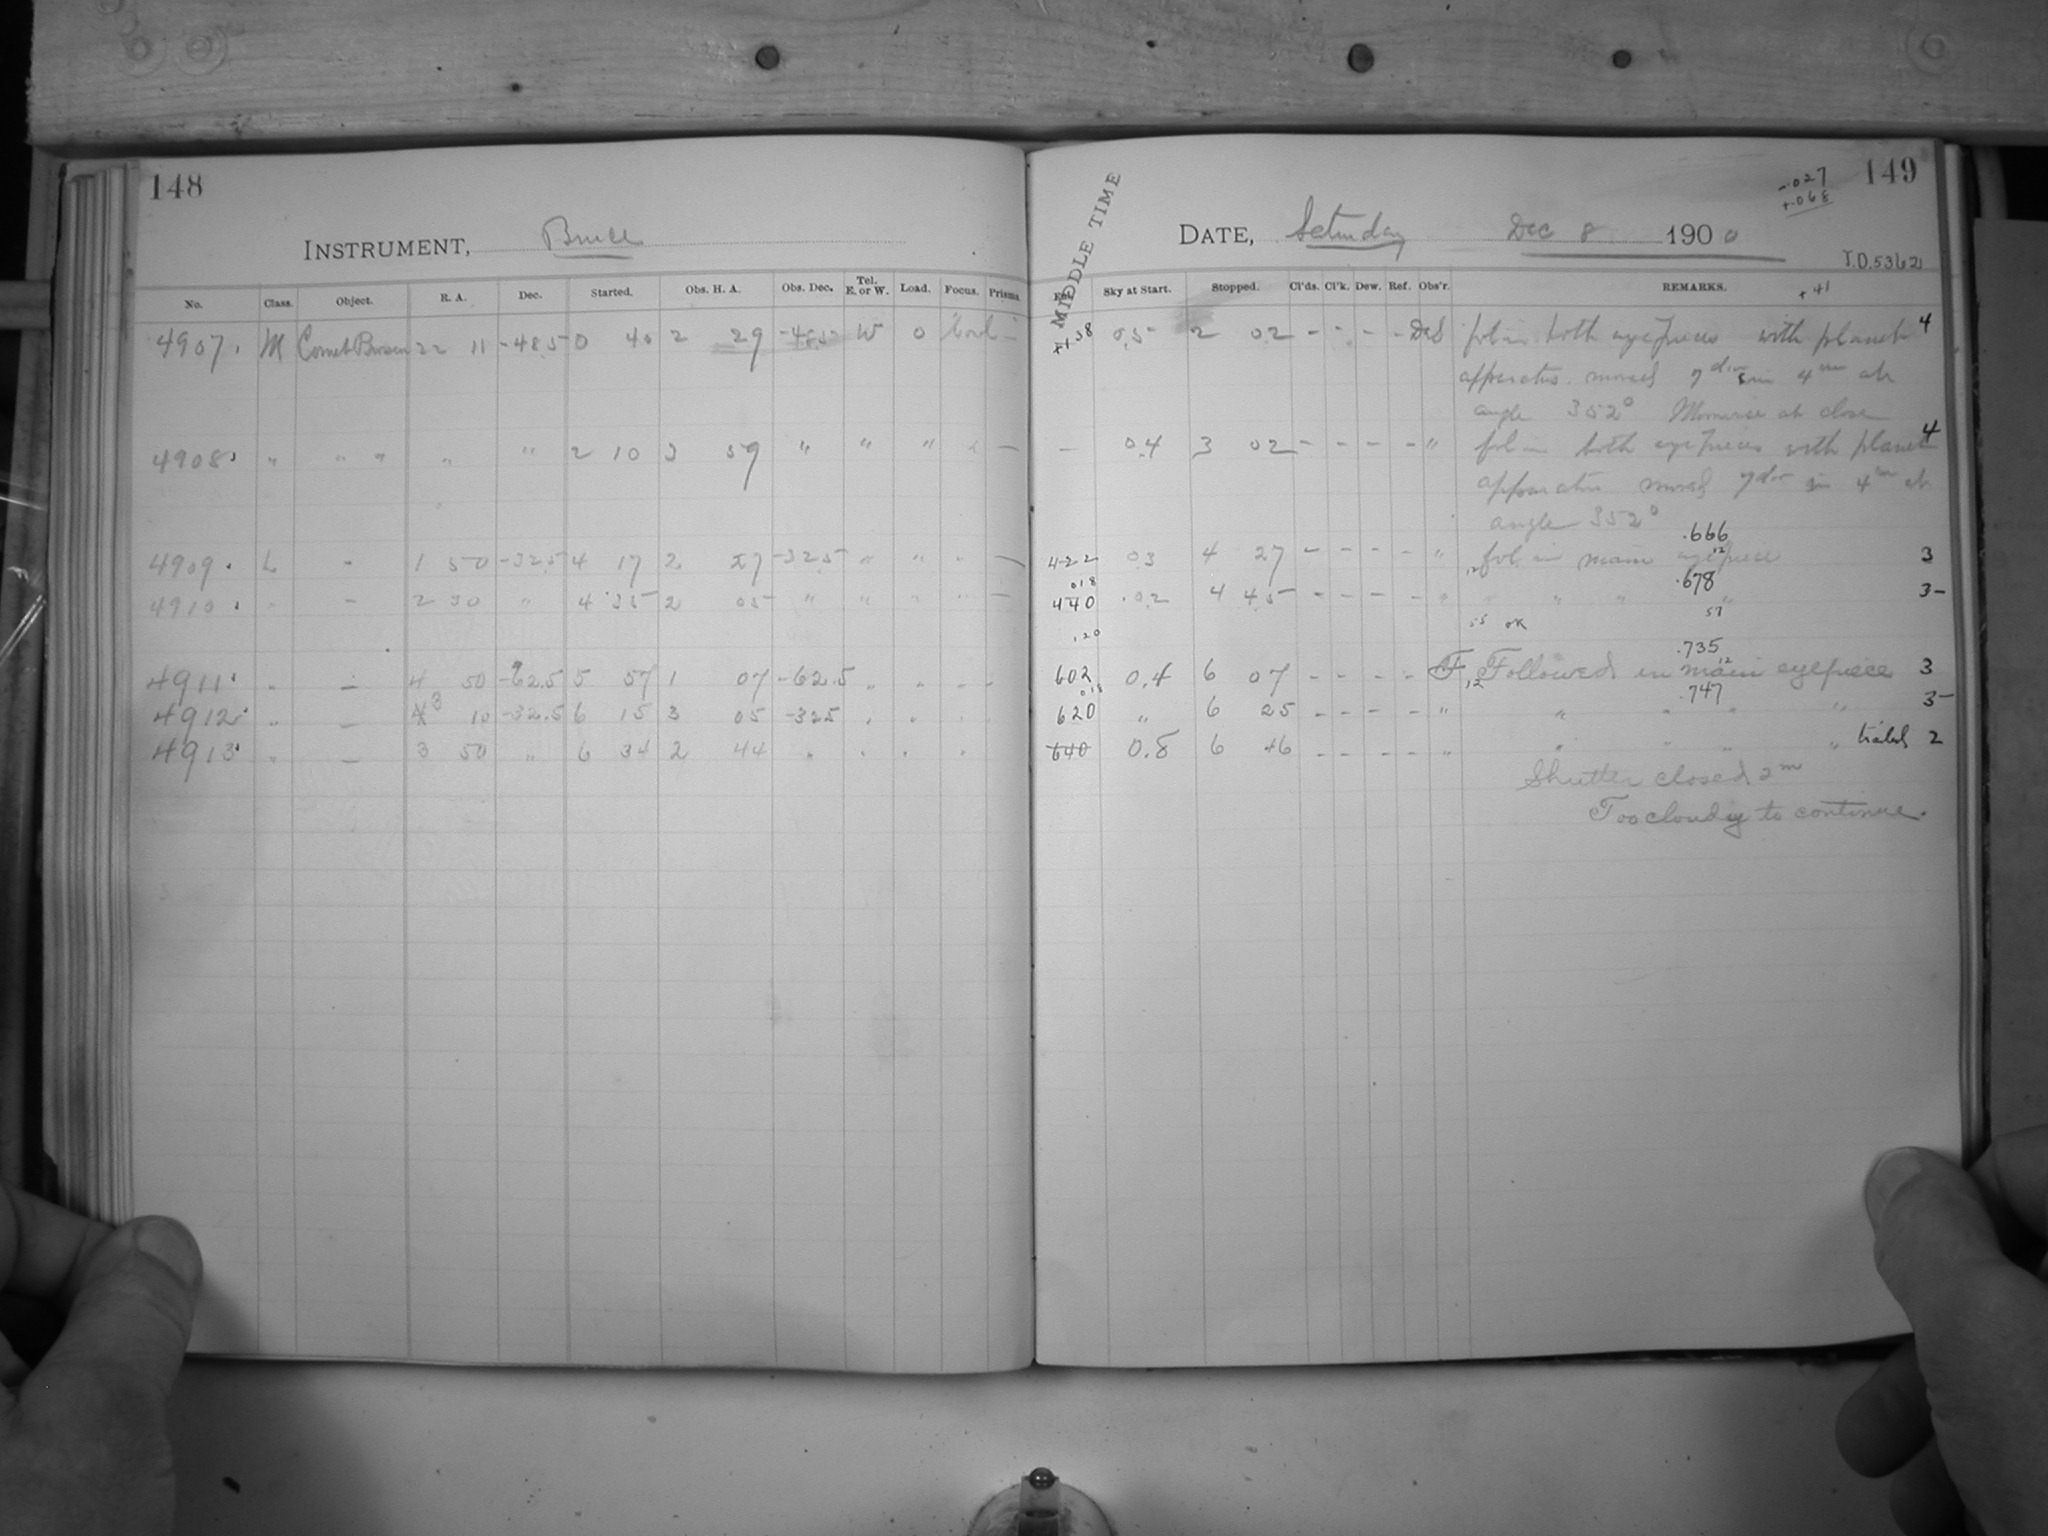 148
INSTRUMENT, Bruce
No. Class. Object. R. A. Dec. Started. Obs. H. A. Obs. Dec. Tel. E. or W. Load. Focus. Prisms.
4907. M Comet 22 11 -48.5 0 40 2 29 -48.5 W 0
4908. " " " " " 2 10 3 59 " " " —
4909. L - 1 50 -32.5 4 17 2 27 -32.5 " " " —
4910. " - 2 30 " 4 35 2 05 " " " " —
4911. " - 4 50 -62.5 5 57 1 07 -62.5 " " - -
4912. " - 3 10 -32.5 6 15 3 05 -32.5 " " "
4913. " - 3 50 " 6 34 2 44 " " " "
149
-.027
+.068
MIDDLE TIME
DATE, Saturday Dec 8 1900
J.D. 5362
Sky at Start. Stopped. Cl'ds. Cl'k. Dew. Ref. Obs'r. REMARKS. + 41
0.5 2 02 - - - - fol in both eyepieces with planet 4
apparatus. moved 7 div in 4m at
angle 352° Moonrise at close
— 0.4 3 02 - - - - " fol in both eyepieces with planet 4
apparatus moved 7 div in 4m at
angle 352°
.666
422 0.3 4 27 - - - - " .12 fol. in main eyepiece 3
018 .678
440 0.2 4 45 - - - - " " " " " 3-
57
55 OK
.20
.735
602 0.4 6 07 - - - - F .12 Followed in main eyepiece 3
018 .747
620 " 6 25 - - - - " " " " " 3-
640 0.8 6 46 - - - - " " " " " trailed 2
Shutter closed 2m
Too cloudy to continue.